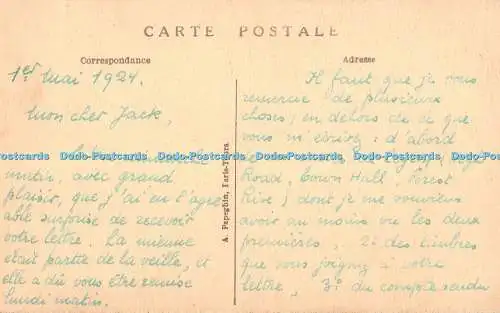 CARTE POSTALE
Correspondance
1er Mai 1924.
Mon cher Jack,
matin, avec grand
plaisir, que j'ai eu l'agré
able surprise de recevoir
votre lettre. La mienne
était partie de la veille, et
elle a dû vous être remise
lundi matin.
A. Papeghin, Paris-Tours.
Adresse
Il faut que je vous
remercie de plusieurs
choses, en dehors de ce que
vous m'écrivez : d'abord
Road, Town Hall, Forest
Rive) dont je me souviens
avoir au moins vu les deux
premières. 2º des timbres
que vous joignez à votre
lettre, 3º du compte rendu
Dodo-Postcards Dodo-Postcards Dodo-Postcards Dodo-Postcards Dodo-Postcards